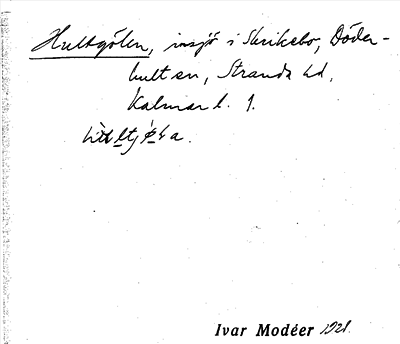 Hultgölen, insjö i Skrikebo, Döder-
hult sn, Stranda hd,
Kalmar l. 1.
Ivar Modéer 1921.